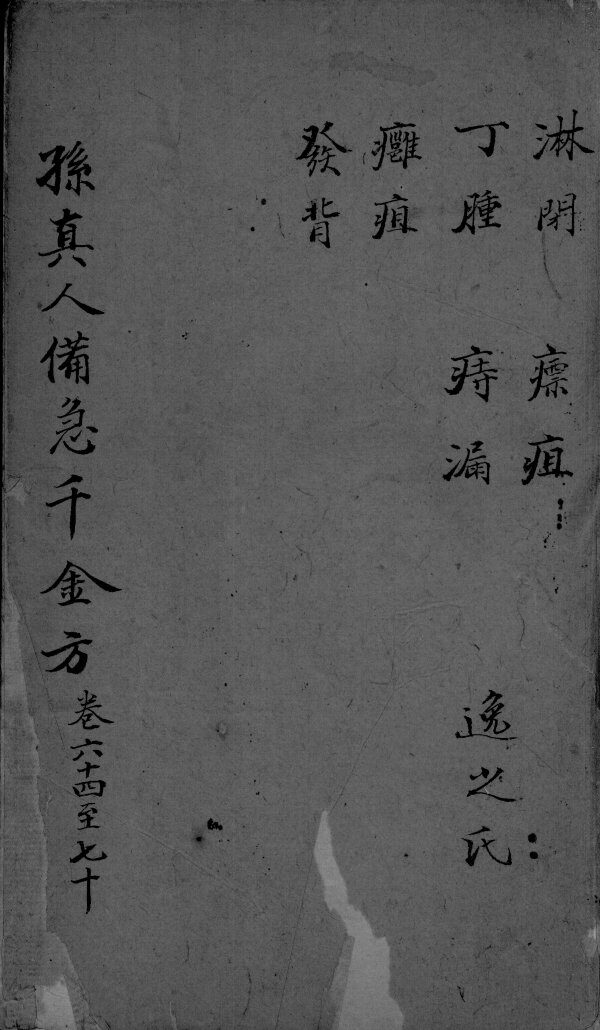 淋閉 瘭疽
丁腫 痔漏 逸之氏
癰疽
發背
孫真人備急千金方卷六十四至七十